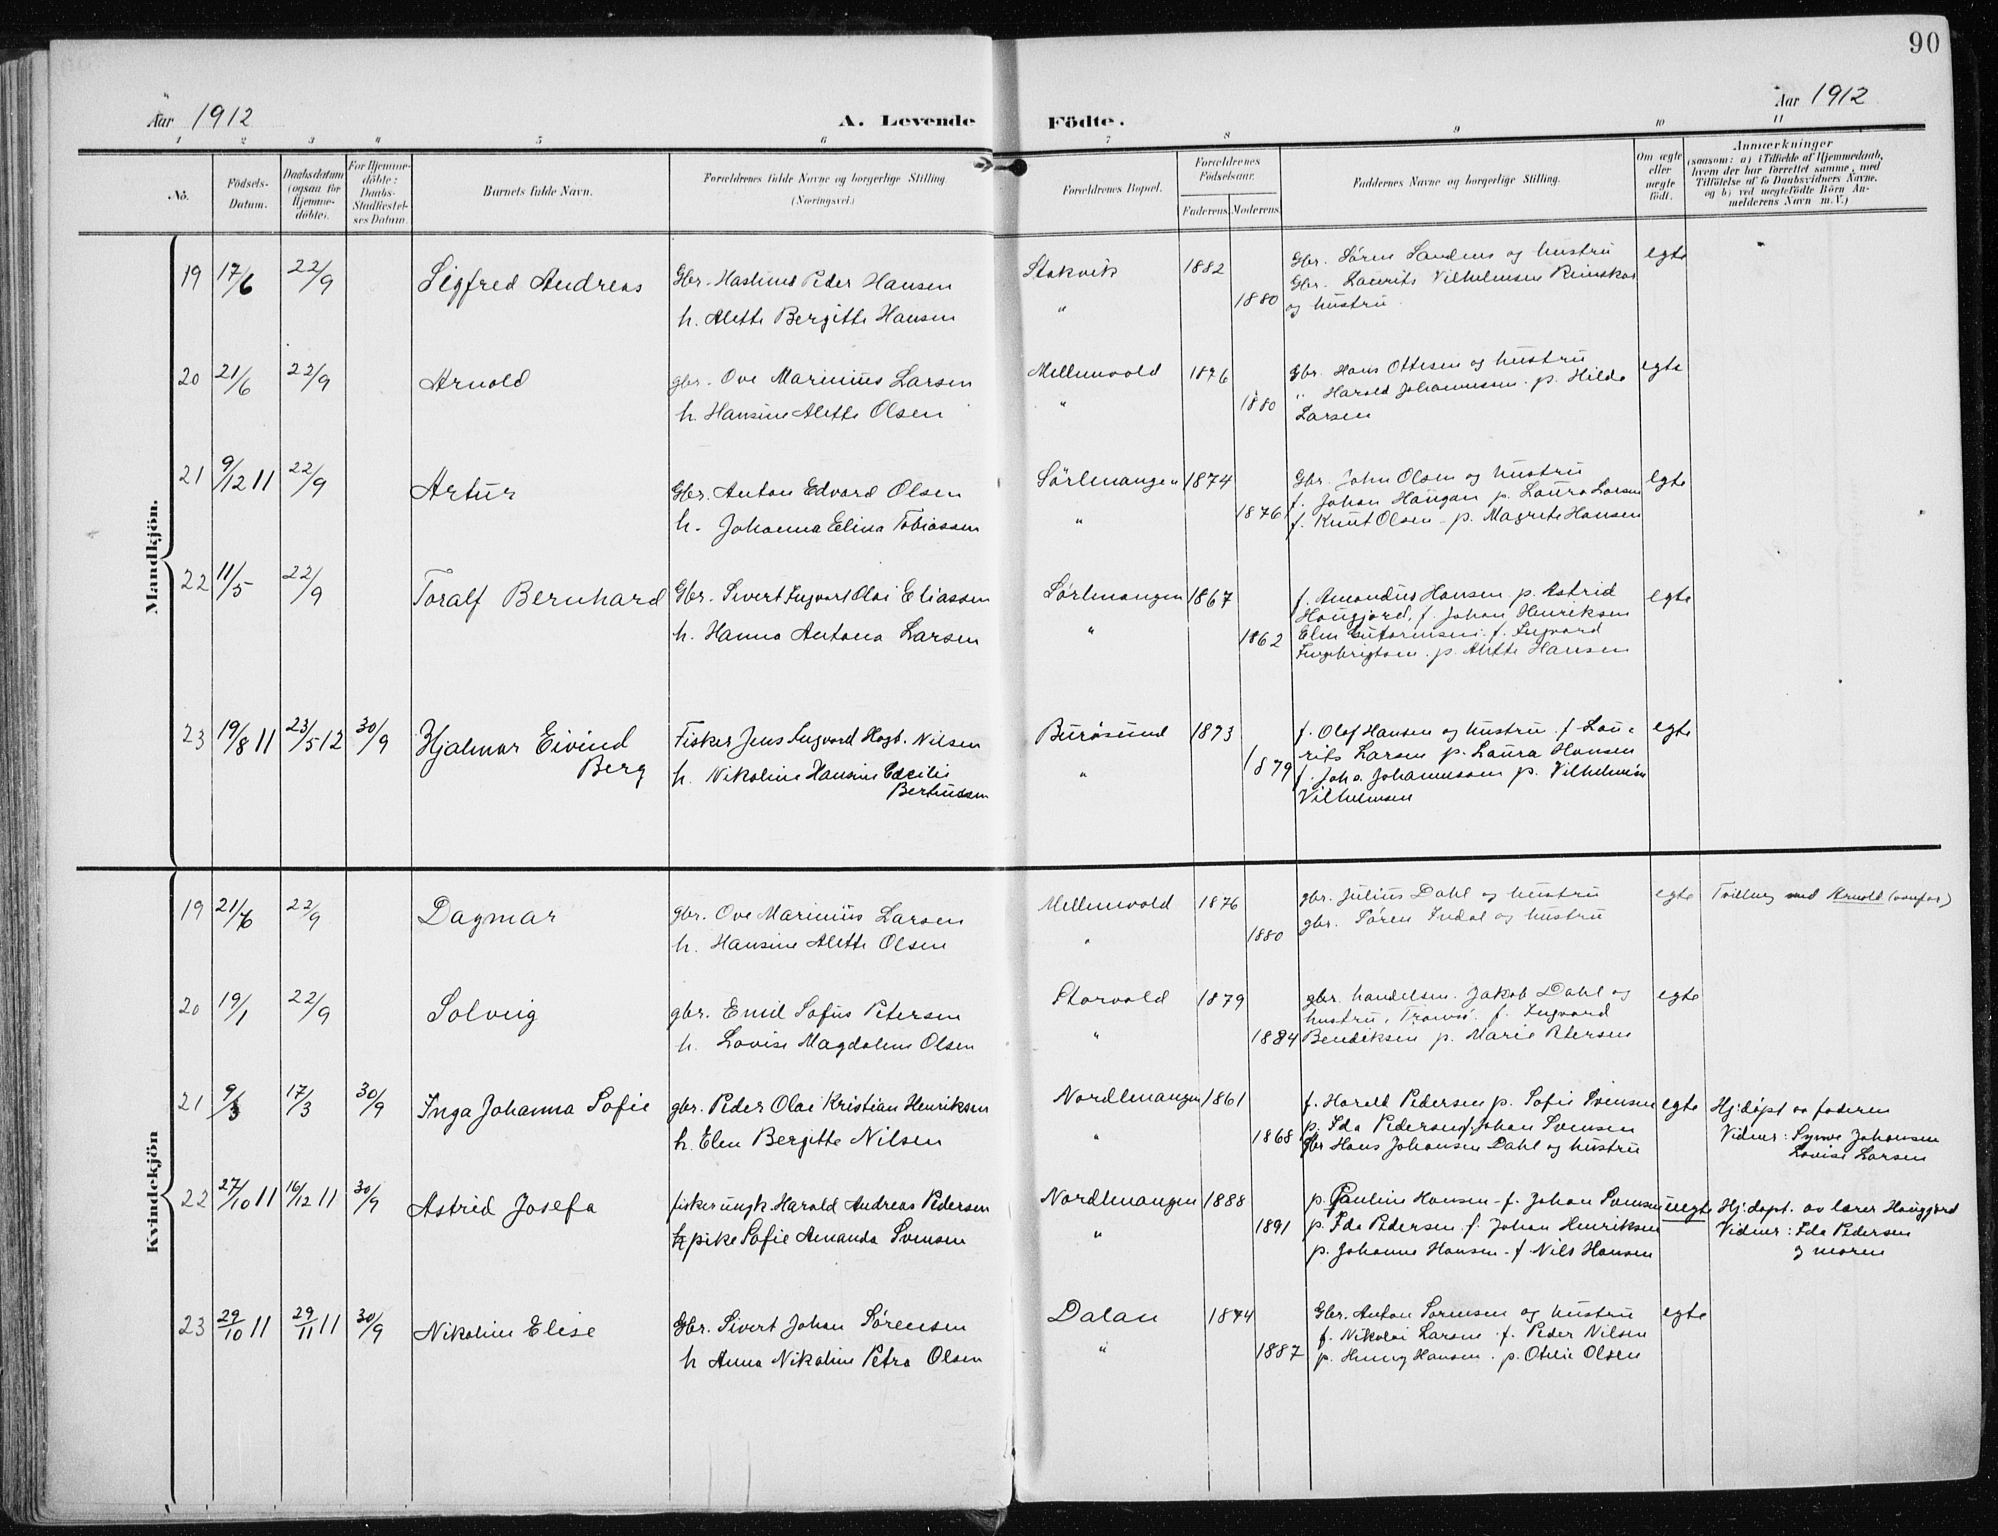 90
Aar 1912
A. Levende Födte.
Aar 1912
1 2 3 4 5 6 7 8 9 10 11
No.
Födsels-
Datum.
Daabsdatum
(ogsaa for
Hjemme-
döbte).
For Hjemme-
döbte:
Daabs-
Stadfæstel-
ses Datum.
Barnets fulde Navn.
Forældrenes fulde Navne og borgerlige Stilling
(Næringsvei.)
Forældrenes Bopæl.
Forældrenes
Födselsaar.
Faderens. Moderens.
Faddernes Navne og borgerlige Stilling.
Om ægte
eller
uægte
födt.
Anmærkninger
(saasom: a) i Tilfælde af Hjemmedaab,
hvem der har forrettet samme, med
Tilföielse af to Daabsvidners Navne.
og b) ved uægtefödte Börn An-
melderens Navn m. V.)
Mandkjön.
19 17/6 22/9 Sigfred Andreas Gbr. Haslund Peder Hansen Stakvik 1882 Gbr. Søren Sandnes og hustru egte
Gbr. Laurits Vilhelmsen Reinskar
h. Alette Bergitte Hansen " 1880 og hustru
20 21/6 22/9 Arnold gbr. Ove Marinius Larsen Mellemvold 1876 Gbr. Hans Ottesen og hustru egte
" Harold Johannessen p. Hilda
h. Hansine Alette Olsen " 1880 Larsen
21 9/12 11 22/9 Artur Gbr. Anton Edvard Olsen Sørlenangen 1874 Gbr. John Olsen og hustru egte
f. Johan Haugan p. Laura Larsen
h. Johanna Elina Tobiassen " 1876 f. Knut Olsen p. Magrete Hansen
22 11/5 22/9 Toralf Bernhard Gbr. Sivert Ingvart Olai Eliassen Sørlenangen 1867 f. Amandus Hansen p. Astrid egte
Haugjord, f. Johan Henriksen
h. Hanna Antona Larsen " 1862 Elen f. Ingvard
Ingebrigtsen p. Alette Hansen
23 19/8 11 23/5 12 30/9 Hjalmar Eivind Fisker Jens Ingvard Hagb. Nilsen Burøsund 1873 f. Olaf Hansen og hustru f. Lau- egte
Berg rits Larsen p. Laura Hansen
h. Nikoline Hansine Cecilie " 1879 f. Joha. Johannessen p. Vilhelmine
Berteussen Vilhelmsen
Kvindekjön
19 21/6 22/9 Dagmar gbr. Ove Marinius Larsen Mellemvold 1876 gbr. Julius Dahl og hustru egte Tvilling med Arnold (ovenfor)
gbr. Søren Indal og hustru
h. Hansine Alette Olsen " 1880
20 19/1 22/9 Solveig gbr. Emil Sofus Petersen Storvold 1879 gbr. handelsm. Jakob Dahl og egte
hustru, Tromsø. f. Ingvard
h. Lovise Magdalene Olsen " 1884 Bendiksen p. Marie Petersen
21 9/3 17/3 30/9 Inga Johanna Sofie gbr. Peder Olai Kristian Henriksen Nordlenangen 1861 f. Harald Pedersen p. Sofie Svensen egte Hj.døpt av faderen
p. Ida Pedersen f. Johan Svensen Vidner: Synve Johansen
h. Elen Bergitte Nilsen " 1868 gbr Hans Johansen Dahl og hustru Lovise Larsen
22 27/10 11 16/12 11 30/9 Astrid Josefa fisker ungk. Harald Andreas Pedersen Nordlenangen 1888 p. Pauline Hansen - f. Johan Svensen uegte Hj.døpt. av lærer Haugjord
p. Ida Pedersen f. Johan Henriksen Vidner: Ida Pedersen
pike Sofie Amanda Svensen " 1891 p. Johanne Hansen - f. Nils Hansen og moren
23 29/10 11 29/11 11 30/9 Nikoline Elise Gbr. Sivert Johan Sørensen Dalan 1874 Gbr. Anton Sørensen og hustru egte
f. Nikolai Larsen f. Peder Nilsen
h Anna Nikoline Petra Olsen " 1887 p. Henny Hansen. p. Otelie Olsen